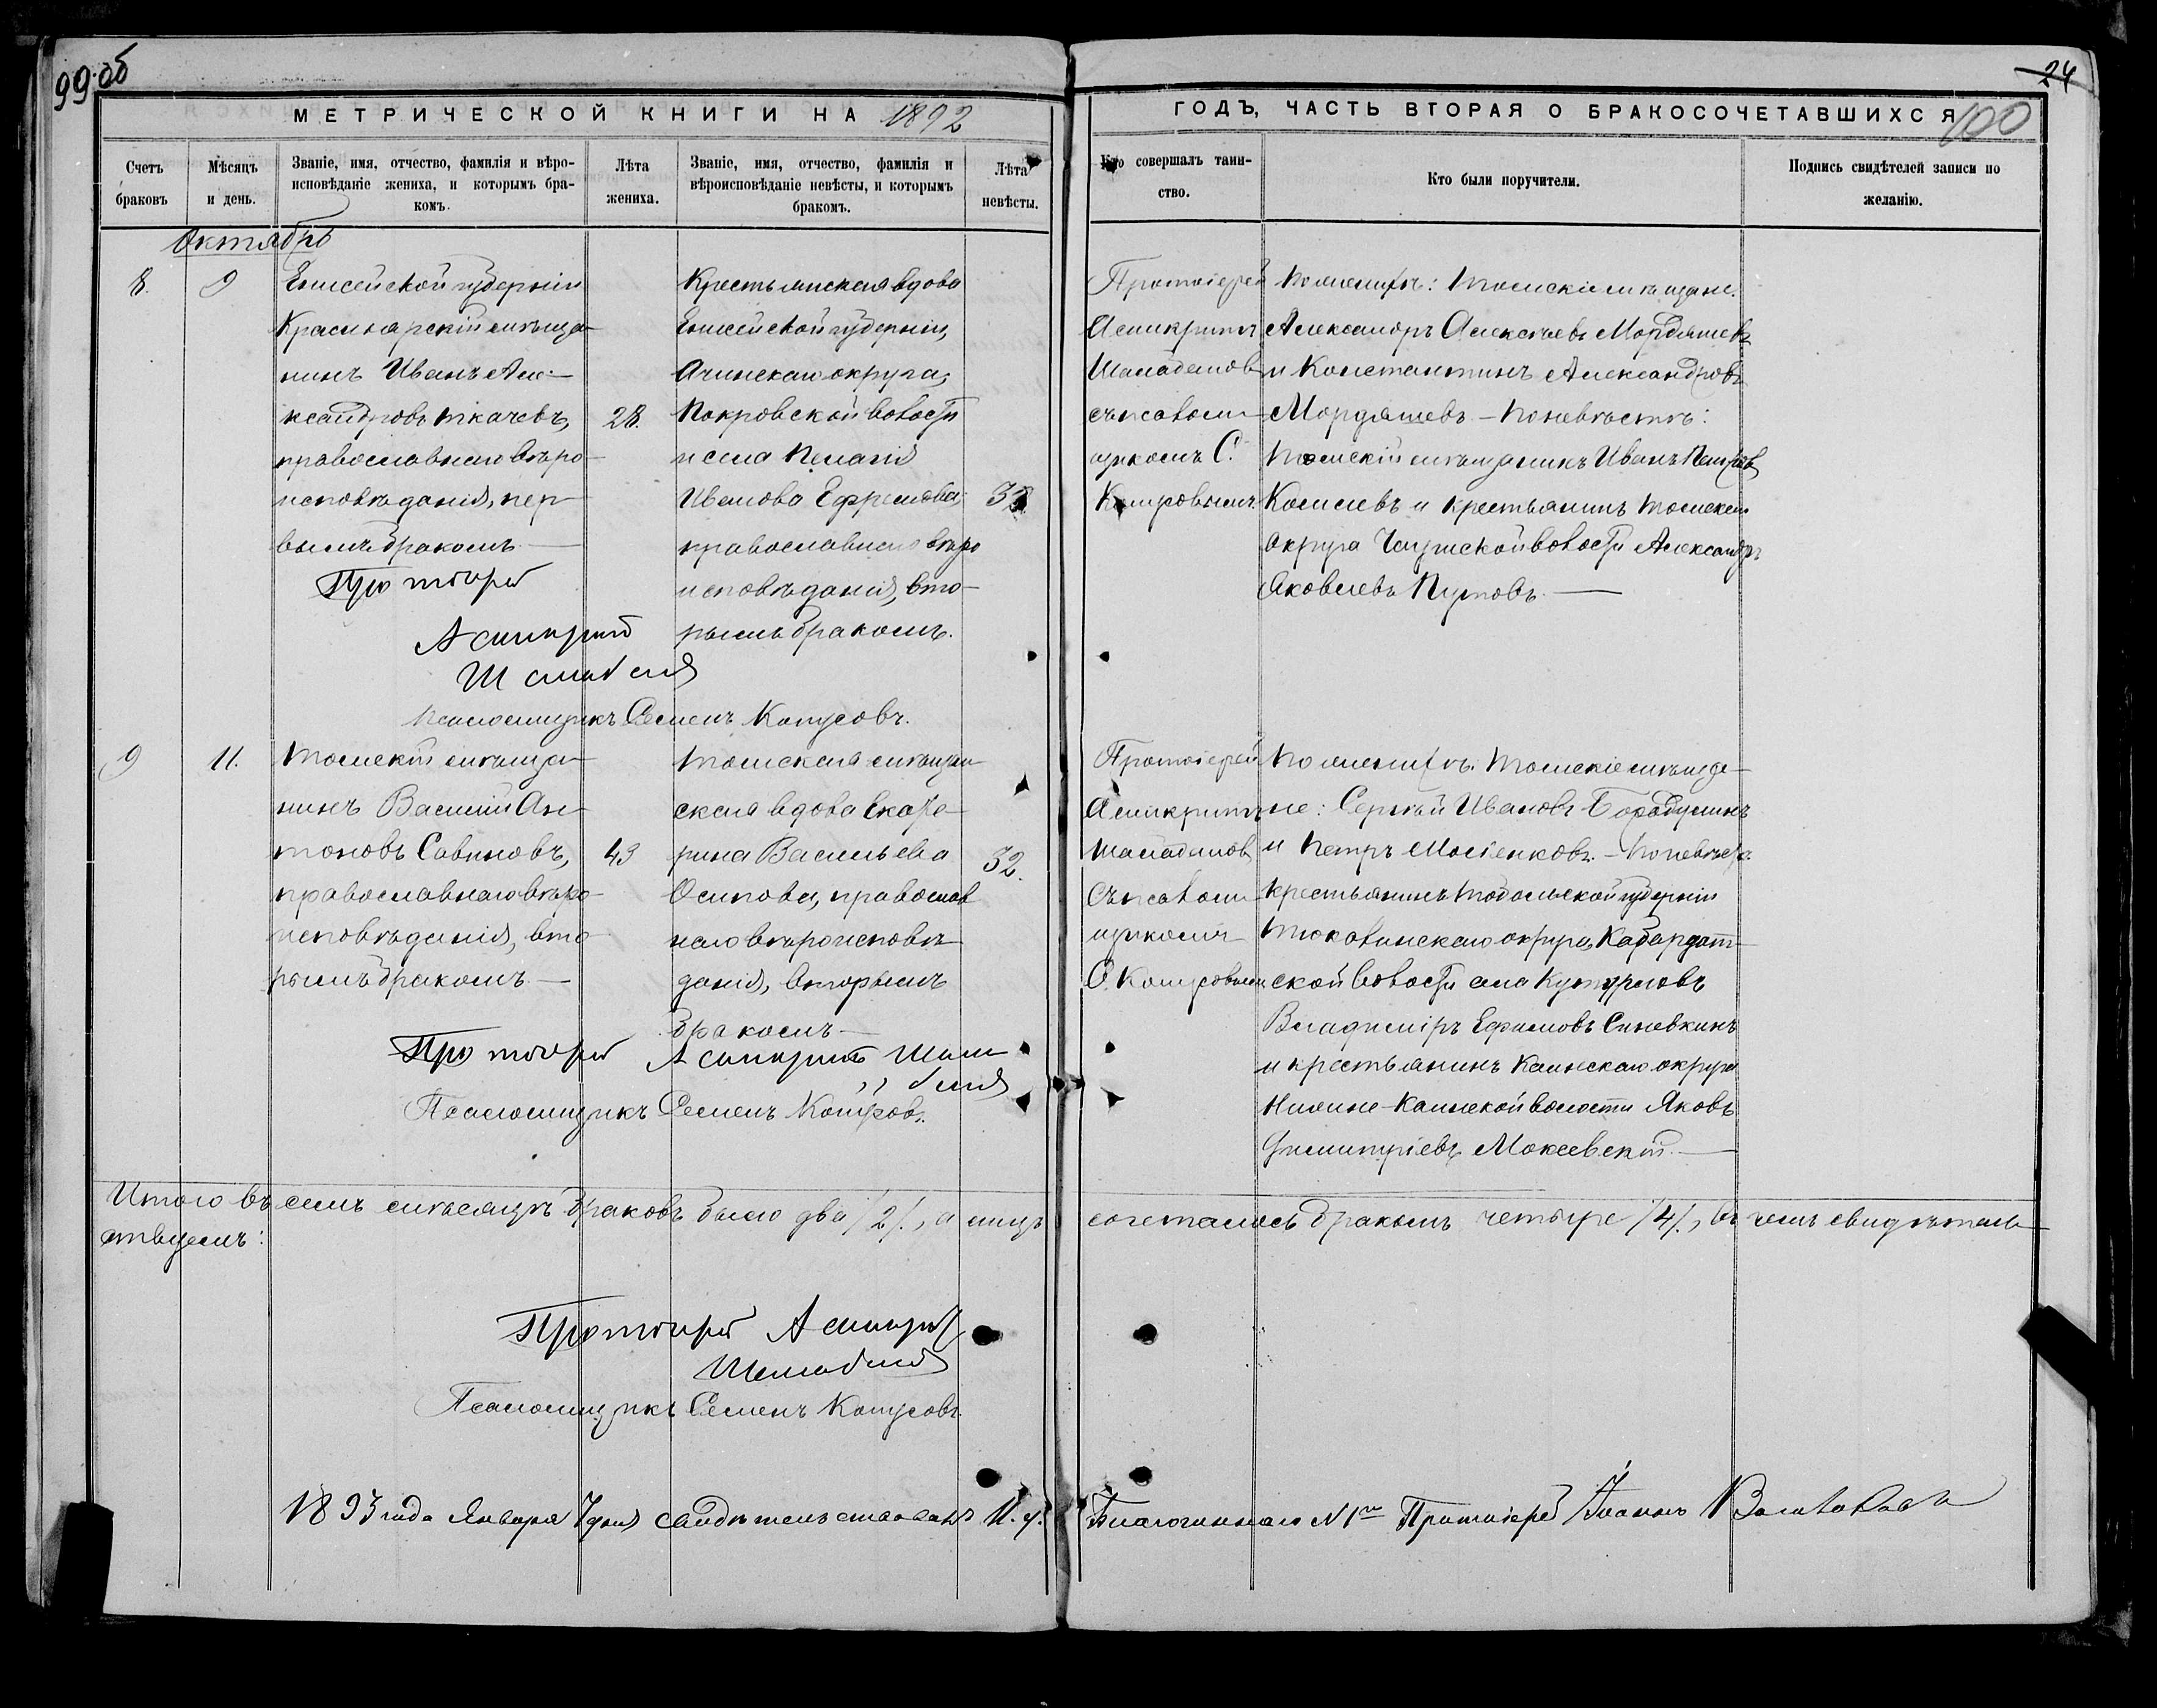 99 об
24
МЕТРИЧЕСКОЙ КНИГИ НА 1892
ГОДЪ, ЧАСТЬ ВТОРАЯ О БРАКОСОЧЕТАВШИХСЯ
100
Счетъ браковъ
Мѣсяцъ и день.
Званіе, имя, отчество, фамилія и вѣро-
исповѣданіе жениха, и которымъ бра-
комъ.
Лѣта жениха.
Званіе, имя, отчество, фамилія и
вѣроисповѣданіе невѣсты, и которымъ
бракомъ.
Лѣта невѣсты.
Кто совершалъ таин-
ство.
Кто были поручители.
Подпись свидѣтелей записи по
желанію.
Октябрь
8.
9
Енисейской губерніи
Красноярскій мѣща-
нинъ Иванъ Але-
ксандровъ Ткачевъ,
православнаго вѣро-
исповѣданія, пер-
вымъ бракомъ.
28.
Крестьянская вдова
Енисейской губерніи,
Ачинскаго округа,
Покровской волости
и села Пелагія
Иванова Ефремова,
православнаго вѣро
исповѣданія, вто-
рымъ бракомъ.
Протоіерей
Асинкритъ
съ псаломщикомъ С.
По женихѣ: Томскіе мѣщане.
Александръ Алексѣевъ Мордяшевъ
и Константинъ Александровъ
Мордяшевъ – По невѣстѣ:
Томскій мѣщанинъ Иванъ Петровъ
и крестьянинъ Томскаго
округа Чаусской волости Александръ
Яковлевъ Пустовъ.
Протоіерей
Асинкритъ
Псаломщикъ Семенъ
9
11.
Томскій мѣща-
нинъ Василій Ан-
тоновъ Савиновъ,
православнаго вѣро-
исповѣданія, вто-
рымъ бракомъ
43
Томская мѣщан-
ская вдова Екате-
рина Васильева
Осипова, православ
наго вѣроисповѣ
данія, вторымъ
бракомъ
32.
Протоіерей
Асинкритъ
съ псаломщикомъ
С.
По женихѣ: Томскіе мѣща-
не: Сергѣй Ивановъ
и Петръ – По невѣстѣ:
крестьянинъ Тобольской губерніи
Тюкалинскаго округа,
ской волости села
Владиміръ Ефимовъ Синевкинъ
и крестьянинъ Каинскаго округа
Нижне-Каинской волости Яковъ
Димитріевъ Мокеевскій.
Протоіерей Асинкритъ
Псаломщикъ Семенъ
Итого въ семъ мѣсяцѣ браковъ было два /2/, а лицъ сочеталось бракомъ четыре /4/, въ чемъ свидѣтель-
ствуемъ:
Протоіерей Асинкритъ
Псаломщикъ Семенъ
1893 года Января 7 дня свидѣтельствовалъ И. д. Благочиннаго № 1го Протоіерей Іоаннъ